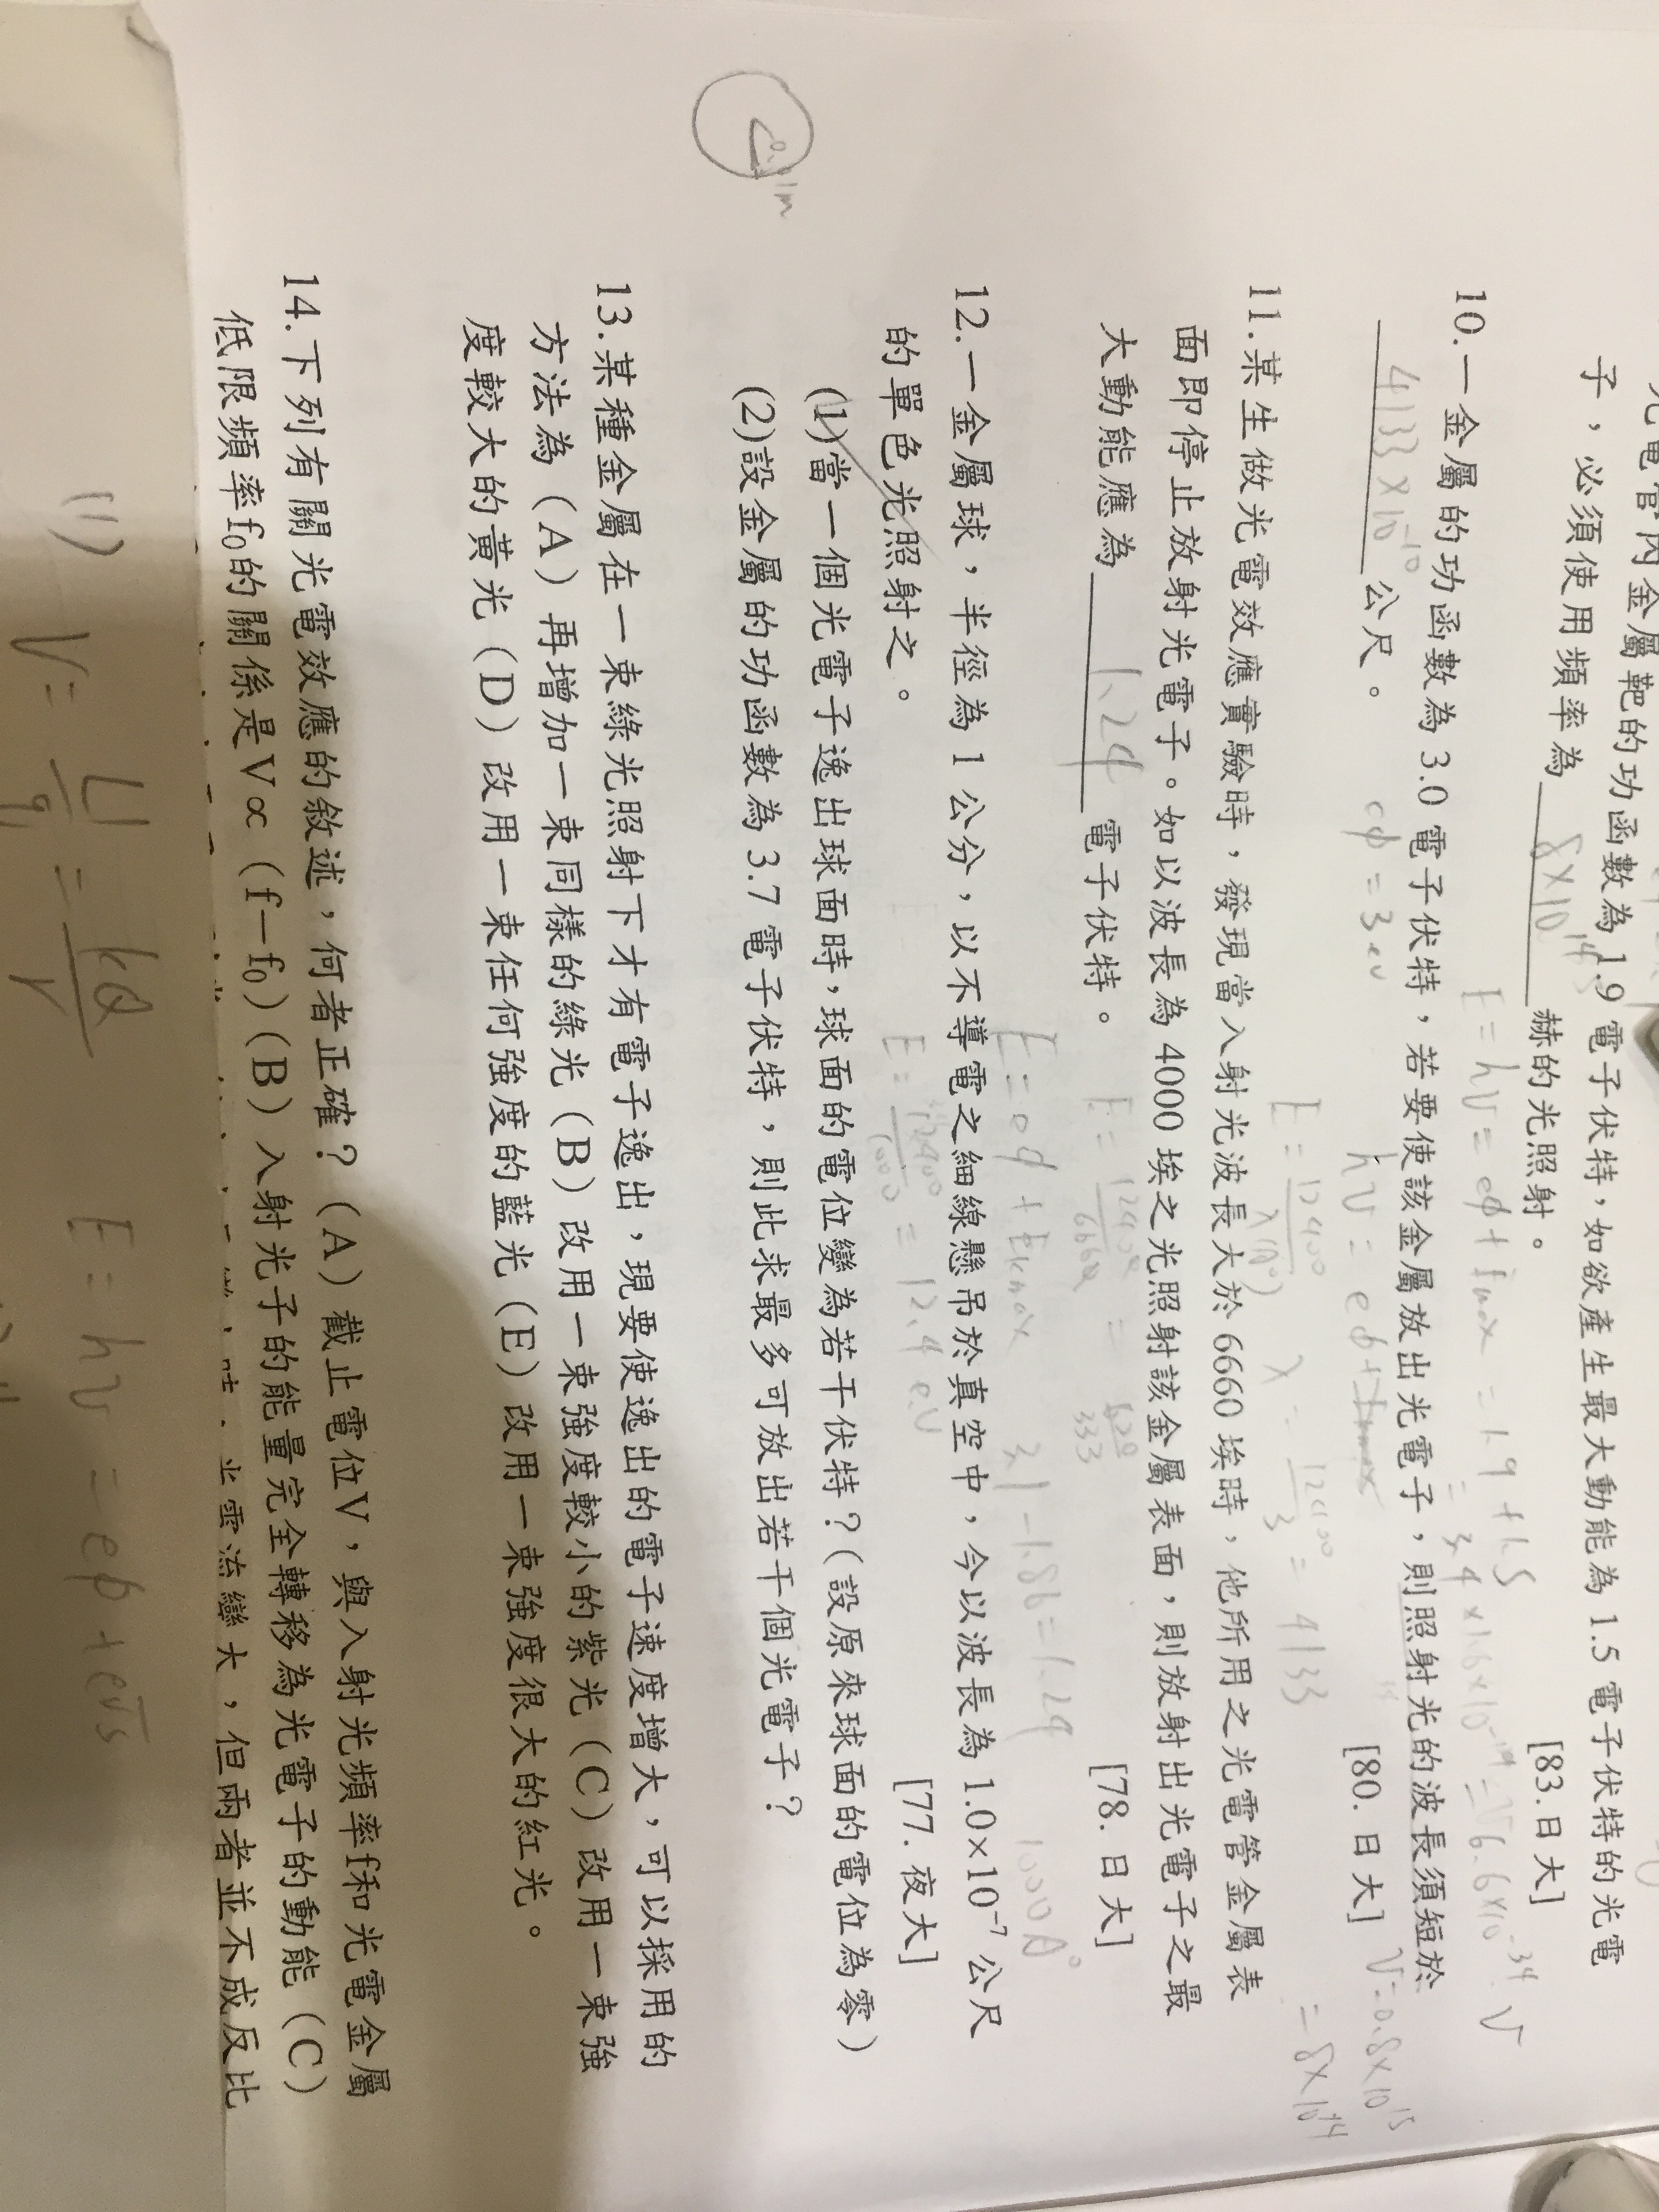 光電管內金屬靶的功函數為1.9電子伏特,如欲產生最大動能為1.5電子伏特的光電
子,必須使用頻率為 8×10^14 赫的光照射。 [83.日大]
E=hν=eφ+Emax = 1.9+1.5
=3.4×1.6×10^-19 = 6.6×10^-34 ν
10.一金屬的功函數為3.0電子伏特,若要使該金屬放出光電子,則照射光的波長須短於
4133×10^-10 公尺。 [80.日大]
eφ=3ev
hν=eφ+
ν=0.8×10^15
=8×10^14
E=12400/λ(A°) λ=12400/3=4133
11.某生做光電效應實驗時,發現當入射光波長大於6660埃時,他所用之光電管金屬表
面即停止放射光電子。如以波長為4000埃之光照射該金屬表面,則放射出光電子之最
大動能應為 1.24 電子伏特。 [78.日大]
E=12400/6660=620/333
E=eφ+Ekmax 3.1-1.86=1.24
1000A°
12.一金屬球,半徑為1公分,以不導電之細線懸吊於真空中,今以波長為1.0×10⁻⁷公尺
的單色光照射之。 [77.夜大]
E=12400/1000=12.4eV
(1)當一個光電子逸出球面時,球面的電位變為若干伏特?(設原來球面的電位為零)
(2)設金屬的功函數為3.7電子伏特,則此求最多可放出若干個光電子?
13.某種金屬在一束綠光照射下才有電子逸出,現要使逸出的電子速度增大,可以採用的
方法為(A)再增加一束同樣的綠光(B)改用一束強度較小的紫光(C)改用一束強
度較大的黃光(D)改用一束任何強度的藍光(E)改用一束強度很大的紅光。
14.下列有關光電效應的敘述,何者正確?(A)截止電位V,與入射光頻率f和光電金屬
低限頻率f₀的關係是V∝(f−f₀)(B)入射光子的能量完全轉移為光電子的動能(C)
電流變大,但兩者並不成反比
(1) V=U/q=kQ/r E=hν=eφ+eVs